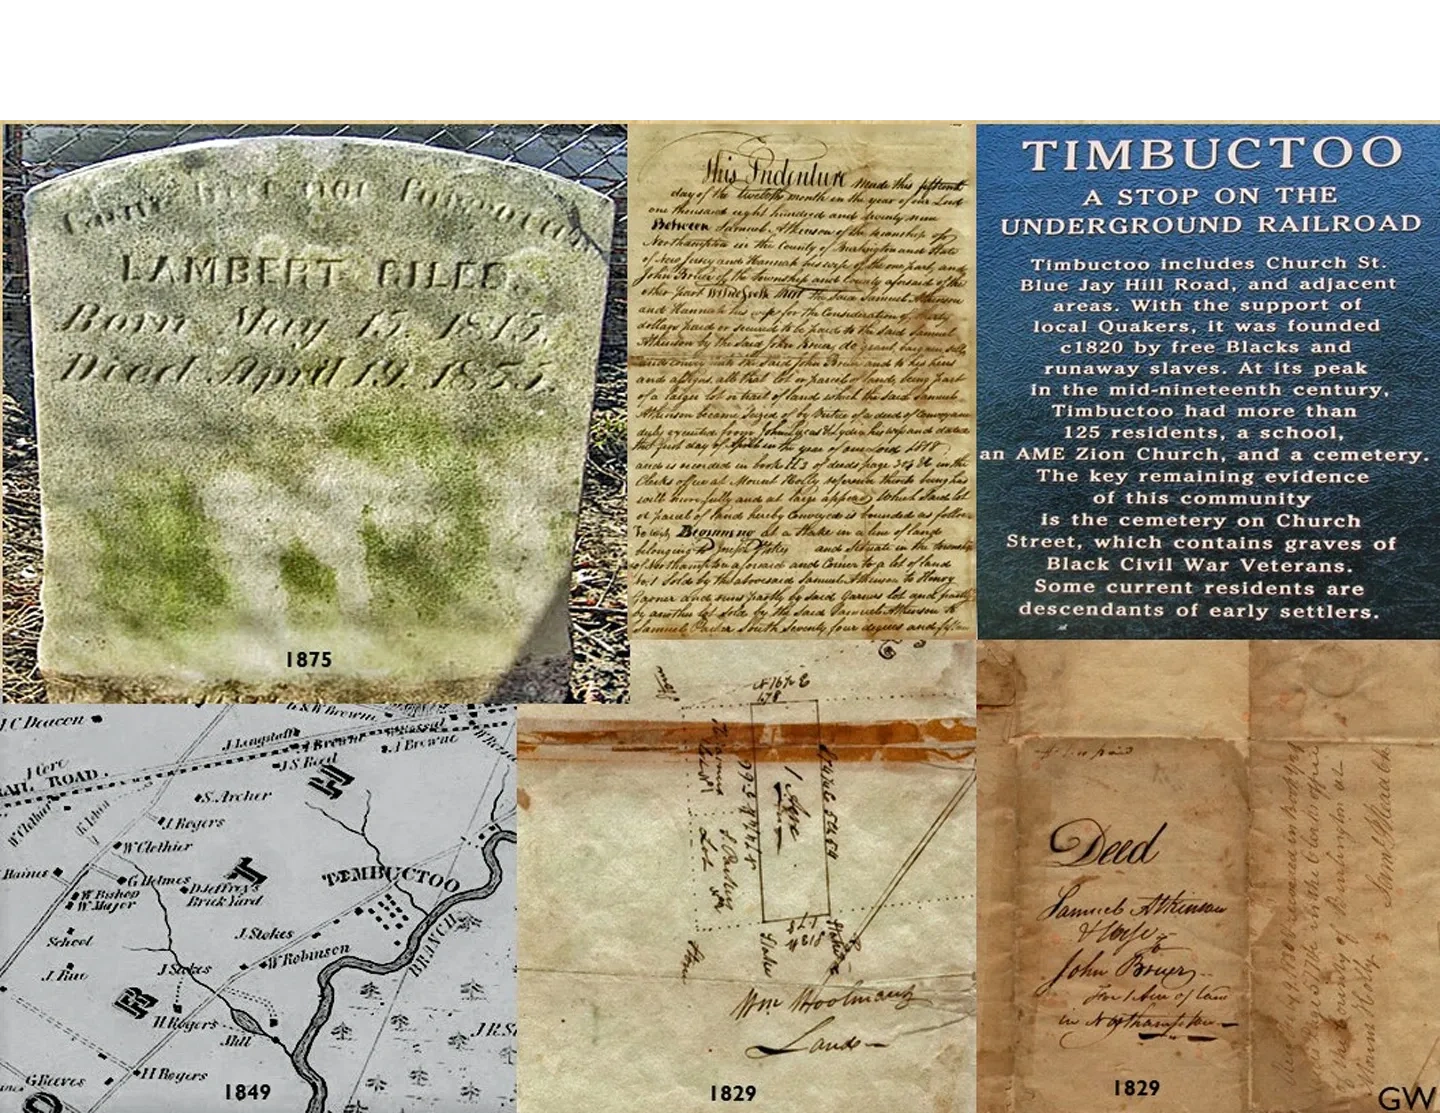 Gone But not Forgotten
LAMBERT GILES.
Born May 15, 1815.
Died April 19, 1875.
1875
This Indenture Made this fifteenth
day of the twelfth month in the year of our Lord
one thousand eight hundred and twenty nine
Between Samuel Atkinson of the township of
Northampton in the County of Burlington and State
of New Jersey and Hannah his wife of the one part, and
John Bruer of the township and County aforesaid of the
other part Witnesseth that the said Samuel Atkinson
and Hannah his wife for the Consideration of thirty
dollars paid or secured to be paid to the said Samuel
Atkinson by the said John Bruer, do grant, bargain, sell
and convey unto the said John Bruer and to his heirs
and assigns, all that lot or parcel of land, being part
of a larger lot or tract of land which the said Samuel
Atkinson became seized of by Virtue of a deed of conveyance
duly executed from John Lucas & Lydia his wife and dated
the first day of April in the year of our Lord 1818
and is recorded in book of deeds page in the
Clerks office at Mount Holly reference thereto being had
will more fully and at large appear, Which said lot
or parcel of land hereby Conveyed is bounded as follows
Beginning at a Stake in a line of land
belonging to Joseph Stokes and Situate in the township
of Northampton aforesaid and Corner to a lot of land
No. 1 Sold by the abovesaid Samuel Atkinson to Henry
Garner and runs partly by said Garners lot and partly
by another lot sold by the said Samuel Atkinson to
Samuel Parker South Seventy four degrees and
TIMBUCTOO
A STOP ON THE
UNDERGROUND RAILROAD
Timbuctoo includes Church St.
Blue Jay Hill Road, and adjacent
areas. With the support of
local Quakers, it was founded
c1820 by free Blacks and
runaway slaves. At its peak
in the mid-nineteenth century,
Timbuctoo had more than
125 residents, a school,
an AME Zion Church, and a cemetery.
The key remaining evidence
of this community
is the cemetery on Church
Street, which contains graves of
Black Civil War Veterans.
Some current residents are
descendants of early settlers.
J C Deacon
G & W Browne
J. Longstaff
J Browne
A Browne
J Core
RAIL ROAD.
J.S. Reed
S. Archer
J. Rogers
W Clothier
Haines
G Helmes
W Bishop
W Major
D Jeffrey's
Brick Yard
TIMBUCTOO
School
J. Stokes
W Robinson
BRANCH
J. Stokes
H. Rogers
Mill
G Reeves
H Rogers
1849
1 Acre
Stake
Wm Woolman
Lands
1829
Deed
Samuel Atkinson
& Wife
to
John Bruer
For 1 Acre of land
in Northampton
1829
GW